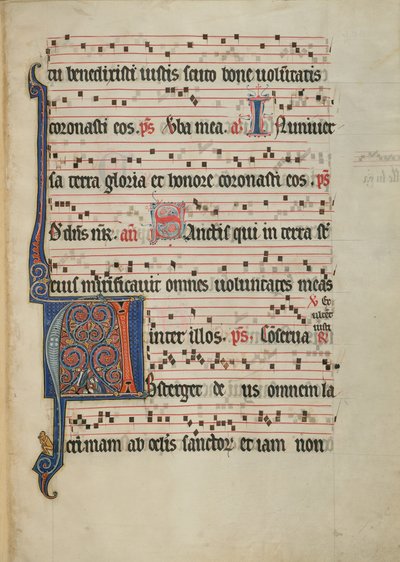 tu benedixisti iustis scuto bone volūtatis
coronasti eos. p̄s Vba mea. an̄ In univer
sa terra gloria et honore coronasti eos. p̄s
D dn̄s nr̄. an̄ Sanctis qui in terra st̄
eius mirificavit omnes voluntates meas
inter illos. p̄s. Cōserva
Absterget de us omnem la
crimam ab oclis sanctor et iam non